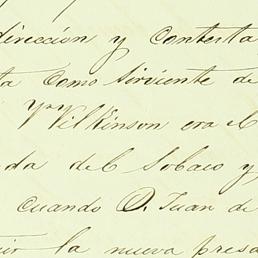 dirección y contesta
ta como sirviente de
y Wilkinson era el
da del Sobaco y
cuando D. Juan de
la nueva presa